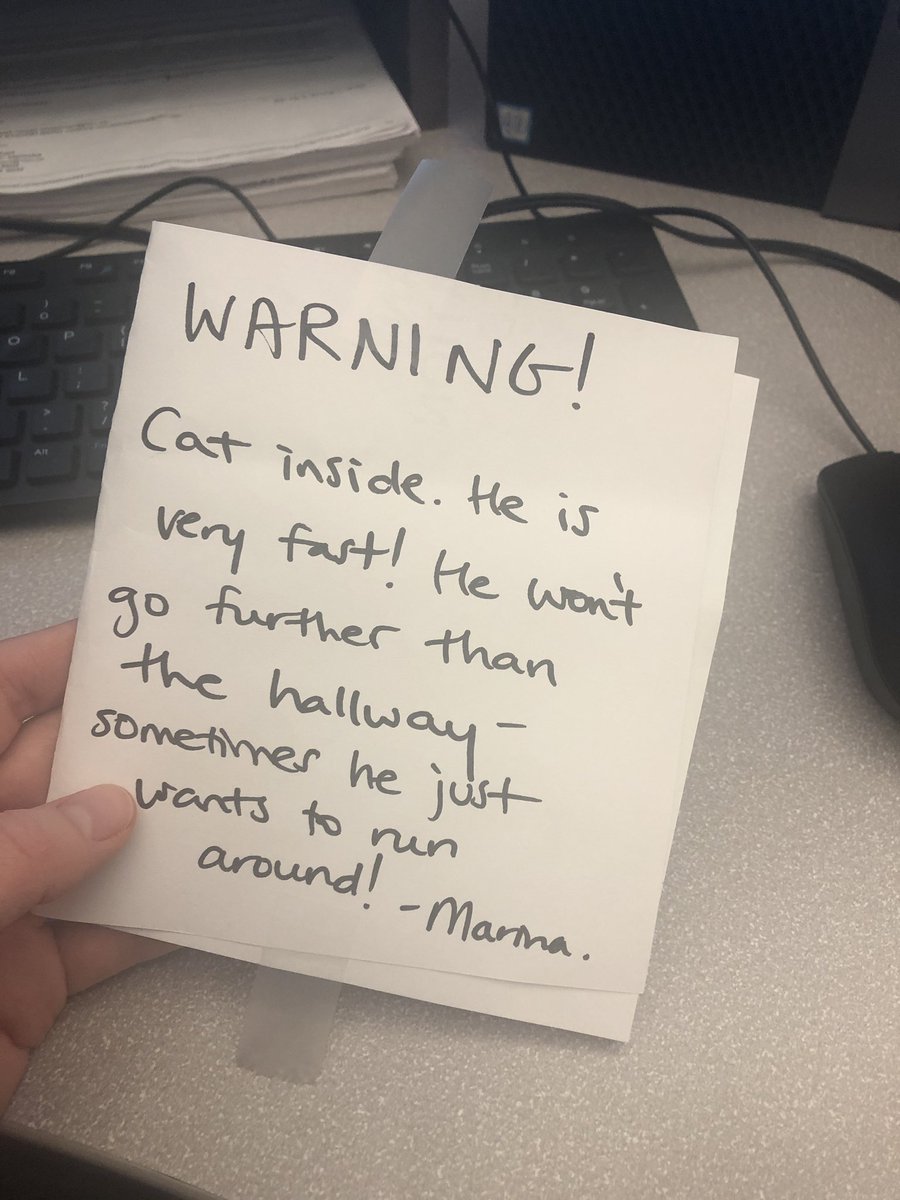 WARNING!
Cat inside. He is
very fast! He won't
go further than
the hallway -
sometimes he just
wants to run
around! - Marina.
O
P
L
Alt